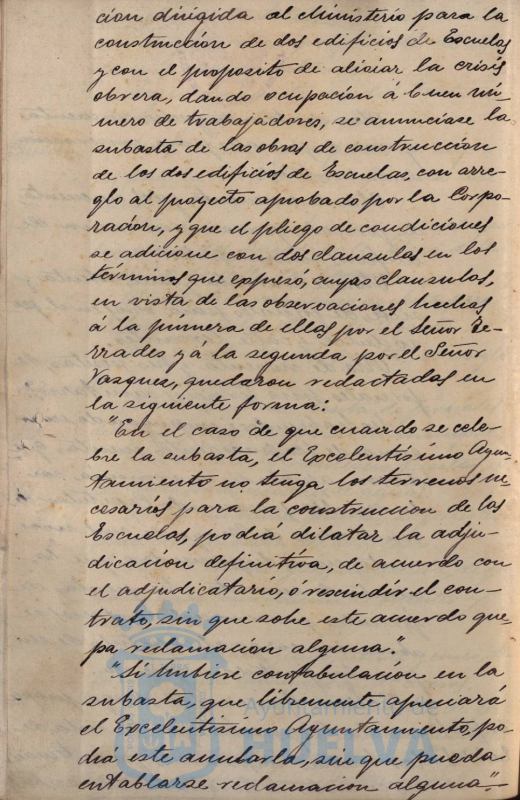 ción dirigida al Ministerio para la
construcción de dos edificios de Escuelas
y con el proposito de aliciar la crisis
obrera, dando ocupación á buen nú-
mero de trabajadores, se anunciase la
subasta de las obras de construcción
de los dos edificios de Escuelas, con arre-
glo al proyecto aprobado por la Corpo-
ración, y que el pliego de condiciones
se adicione con dos clausulas en los
términos que expresó, cuyas clausulas,
en vista de las observaciones hechas
á la primera de ellas por el Señor Te-
rrades y á la segunda por el Señor
Vazquez, quedaron redactadas en
la siguiente forma:
"En el caso de que cuando se cele-
bre la subasta, el Excelentísimo Ayun-
tamiento no tenga los terrenos ne-
cesarios para la construcción de las
Escuelas, podrá dilatar la adju-
dicación definitiva, de acuerdo con
el adjudicatario, ó rescindir el con-
trato, sin que sobre este acuerdo que-
pa reclamación alguna."
"Si hubiese confabulación en la
subasta, que libremente apreciará
el Excelentísimo Ayuntamiento, po-
drá este anularla, sin que pueda
entablarse reclamación alguna".-
Ayuntamiento de
HUELVA